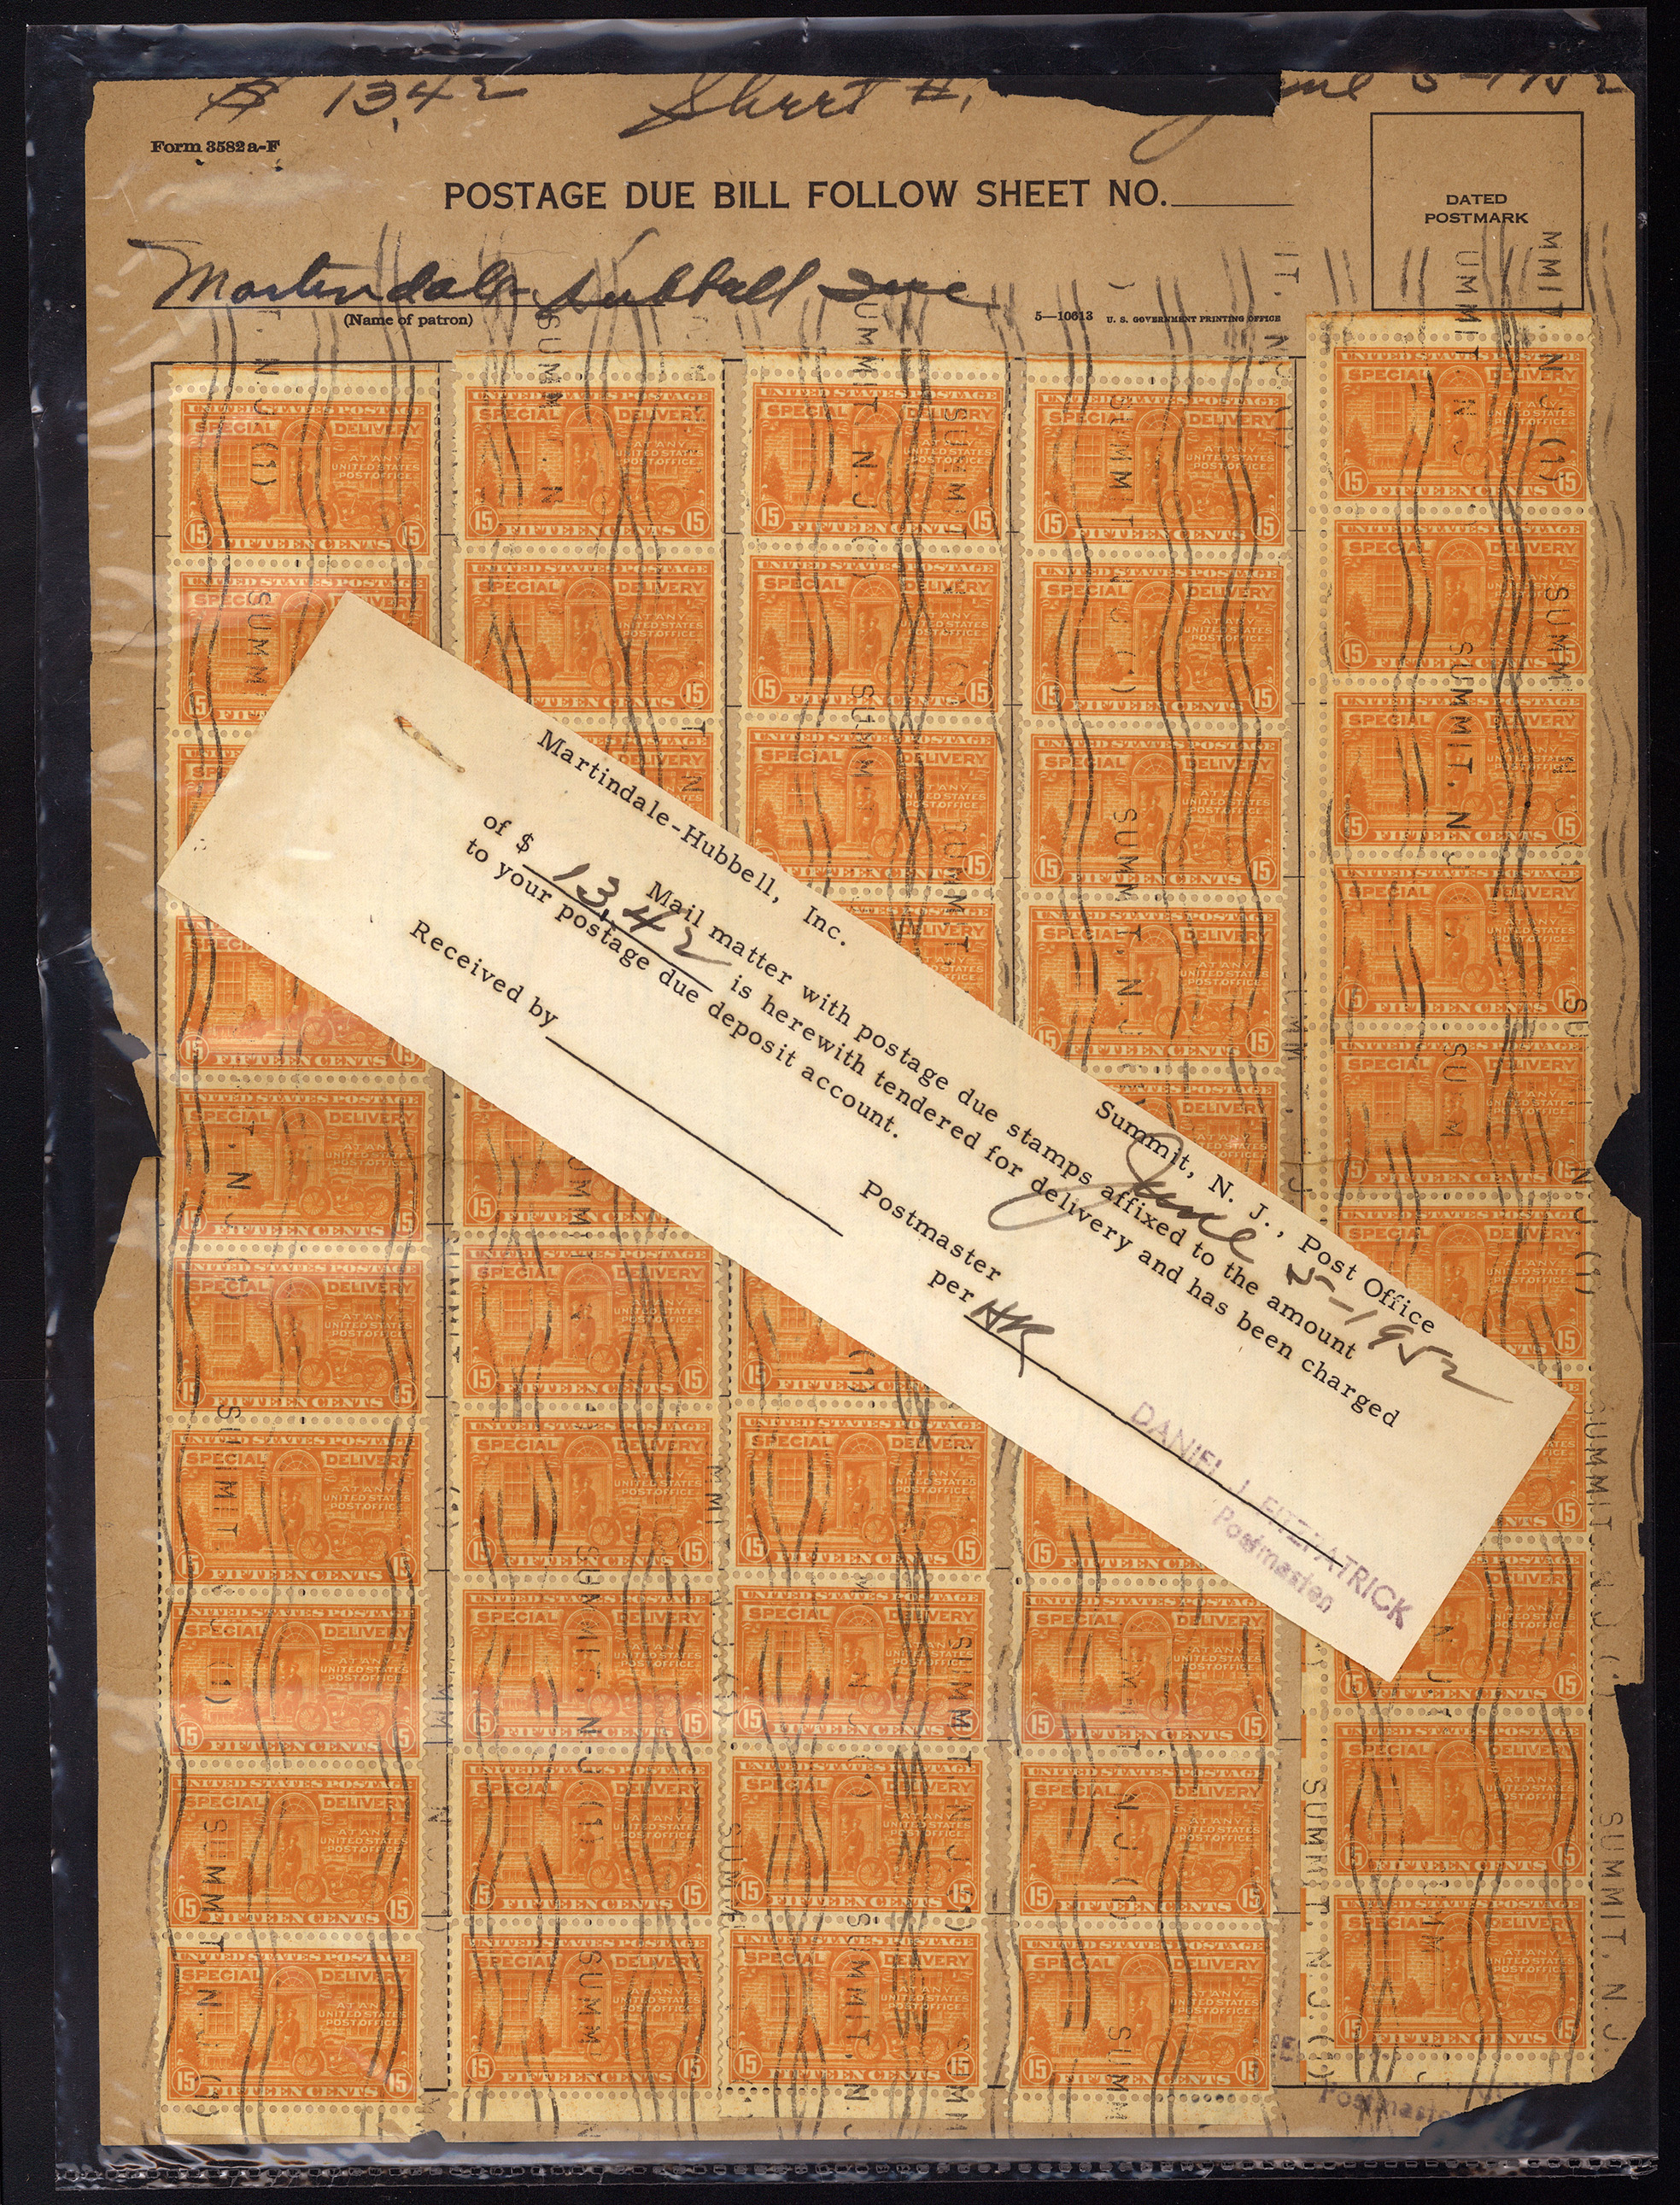 $ 13.42 Sheet #1 June 5-1952
Form 3582 a-F
POSTAGE DUE BILL FOLLOW SHEET NO.
DATED
POSTMARK
Martindale Hubbell Inc
(Name of patron)
5—10613 U. S. GOVERNMENT PRINTING OFFICE
UNITED STATES POSTAGE
SPECIAL DELIVERY
AT ANY
UNITED STATES
POST OFFICE
15 FIFTEEN CENTS 15
SUMMIT, N.J. (1)
Martindale-Hubbell, Inc.
Summit, N. J., Post Office
June 5-1952
Mail matter with postage due stamps affixed to the amount
of $ 13.42 is herewith tendered for delivery and has been charged
to your postage due deposit account.
Received by
Postmaster
per HR
DANIEL J. FITZPATRICK
Postmaster
Postmaster